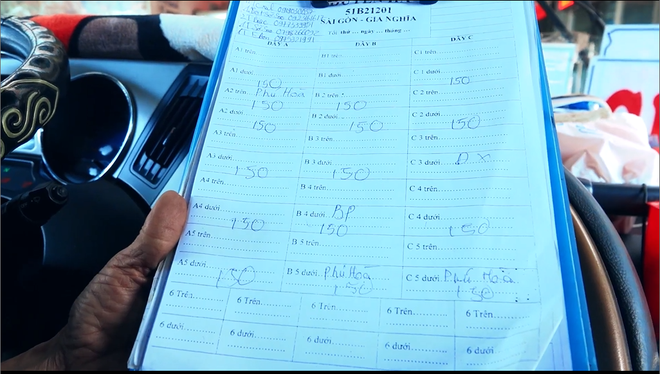 51B21201
SÀI GÒN - GIA NGHĨA
Tài: thứ ... ngày ... tháng ...
DÃY A DÃY B DÃY C
A1 trên B1 trên C1 trên
A1 dưới B1 dưới C1 dưới
150 150
A2 trên Phú Hoà B 2 trên C 2 trên
150 150
A2 dưới B 2 dưới C 2 dưới
150 150 150
A3 trên B 3 trên C 3 trên
A3 dưới B 3 dưới C 3 dưới ĐX
150 150
A4 trên B 4 trên C 4 trên
A4 dưới B 4 dưới BP C 4 dưới
150 150 150
A5 trên B 5 trên C 5 trên
A5 dưới B 5 dưới Phú Hoà C 5 dưới Phú Hoà
150 150 150
6 Trên 6 Trên 6 Trên 6 Trên 6 Trên
6 dưới 6 dưới 6 dưới 6 dưới 6 dưới